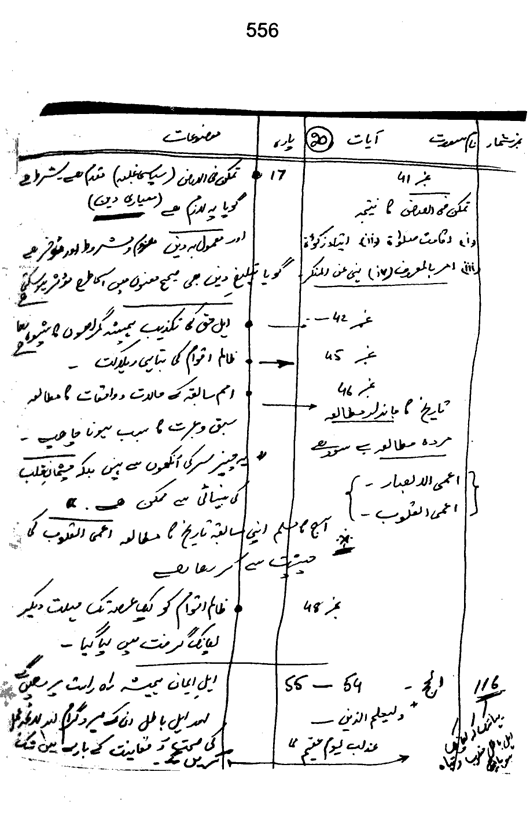 556
نمبر شمار نام سورت آیات (20) پارہ موضوعات
نمبر 41 17 • تمکن فی الارض (سیاسی غلبہ) مقدم ہے شرط ہے
تمکن فی الارض کا نتیجہ گویا یہ لازم ہے (معیاری دین)
(i) اقامت صلوٰۃ (ii) ایتاء زکوٰۃ اور معمول بہ دین مشروط اور مؤخر ہے
(iii) امر بالمعروف (iv) نہی عن المنکر گویا تبلیغ دین بھی صحیح معنوں میں اسی طرح مؤثر ہو سکتی
نمبر 42 -- • اہل حق کی تکذیب ہمیشہ گمراہوں کا شیوہ
نمبر 45 • ظالم اقوام کی تباہی و ہلاکت -
نمبر 46 • امم سابقہ کے حالات و واقعات کا مطالعہ
تاریخ کا جاندار مطالعہ سبق و عبرت کا سبب ہونا چاہیے -
مردہ مطالعہ بے سود ہے * یہ چیز سر کی آنکھوں سے نہیں بلکہ چشمان قلب
اعمی الابصار - کی بینائی سے ممکن ہے .
اعمی القلوب - آج کا مسلم اپنی سابقہ تاریخ کا مطالعہ اعمی القلوب کی
حیثیت سے کر رہا ہے
نمبر 48 • ظالم اقوام کو کچھ عرصہ تک مہلت دیکر
اچانک گرفت میں لیا گیا -
116 الحج - 54 - 55 اہل ایمان ہمیشہ راہ راست پر
* ولیعلم الذین - اور اہل باطل
عذاب یوم عقیم کی کے بارے میں شک